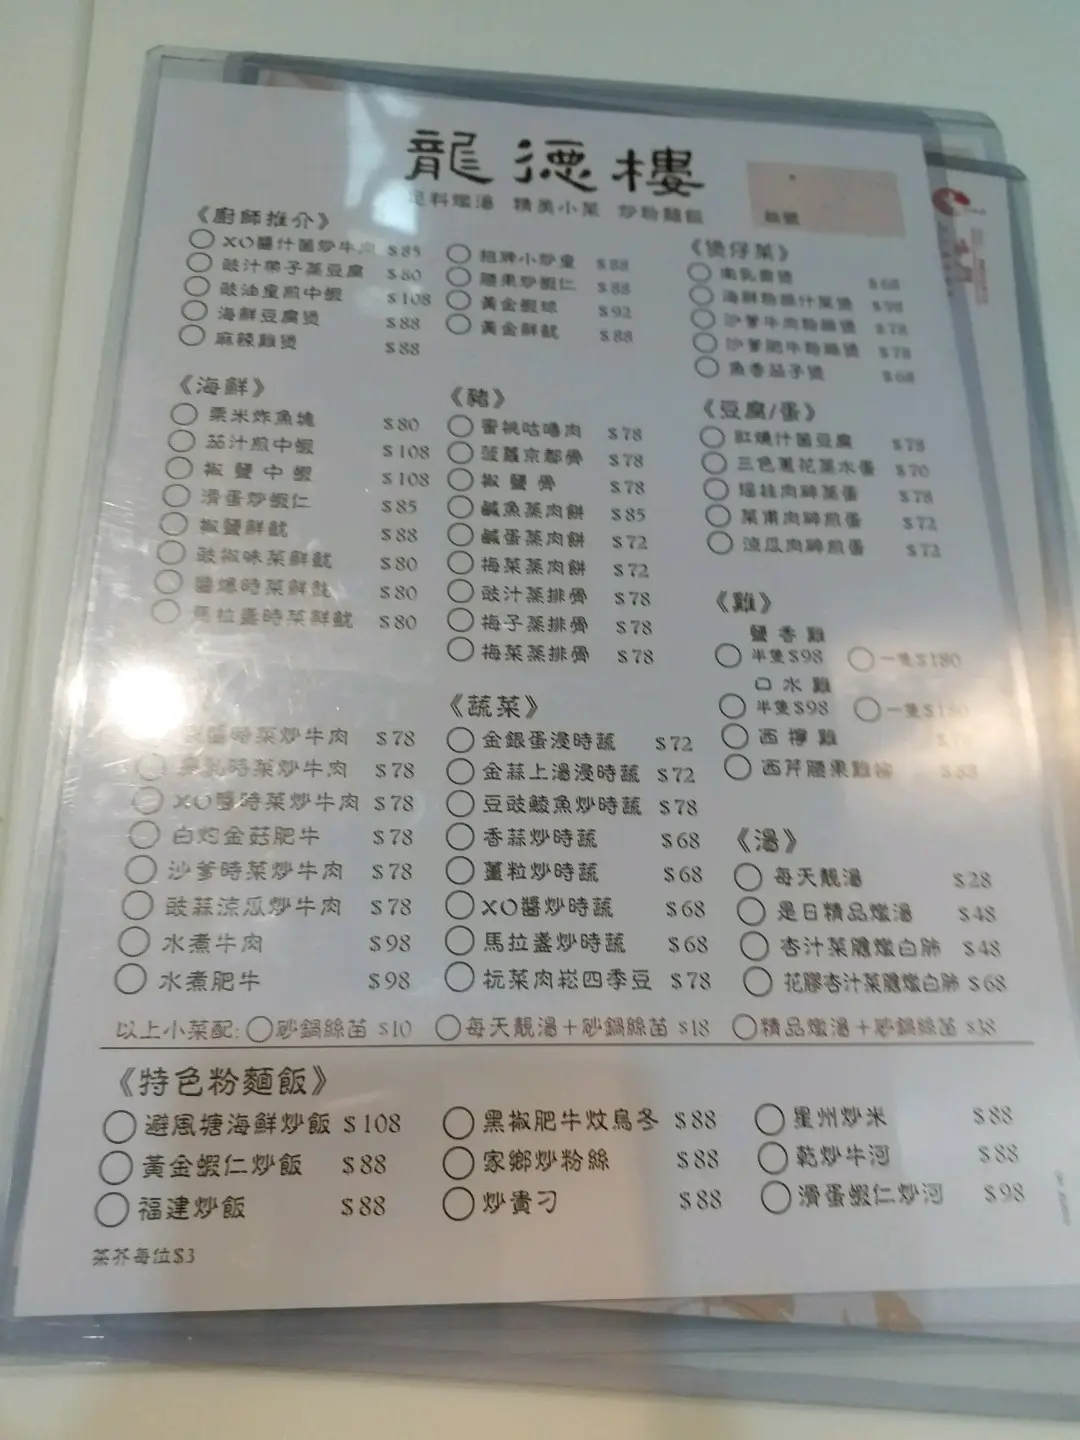 龍德樓
足料燉湯 精美小菜 炒粉麵飯
《廚師推介》
XO醬什菌炒牛肉 $85
豉汁帶子蒸豆腐 $80
豉油皇煎中蝦 $108
海鮮豆腐煲 $88
麻辣雞煲 $88
招牌小炒皇 $88
腰果炒蝦仁 $88
黃金蝦球 $92
黃金鮮魷 $88
《煲仔菜》
南乳齋煲 $68
海鮮粉絲什菜煲 $98
沙爹牛肉粉絲煲 $78
沙爹肥牛粉絲煲 $78
魚香茄子煲 $68
《海鮮》
粟米炸魚塊 $80
茄汁煎中蝦 $108
椒鹽中蝦 $108
滑蛋炒蝦仁 $85
椒鹽鮮魷 $88
豉椒味菜鮮魷 $80
醬爆時菜鮮魷 $80
馬拉盞時菜鮮魷 $80
《豬》
蜜桃咕嚕肉 $78
菠蘿京都骨 $78
椒鹽骨 $78
鹹魚蒸肉餅 $85
鹹蛋蒸肉餅 $72
梅菜蒸肉餅 $72
豉汁蒸排骨 $78
梅子蒸排骨 $78
梅菜蒸排骨 $78
《豆腐/蛋》
紅燒什菌豆腐 $78
三色蔥花蒸水蛋 $70
瑤柱肉碎蒸蛋 $78
菜甫肉碎煎蛋 $72
涼瓜肉碎煎蛋 $72
《雞》
鹽香雞
半隻$98 一隻$180
口水雞
半隻$98 一隻$180
西檸雞
西芹腰果雞柳 $88
時菜炒牛肉 $78
時菜炒牛肉 $78
XO醬時菜炒牛肉 $78
白灼金菇肥牛 $78
沙爹時菜炒牛肉 $78
豉蒜涼瓜炒牛肉 $78
水煮牛肉 $98
水煮肥牛 $98
《蔬菜》
金銀蛋浸時蔬 $72
金蒜上湯浸時蔬 $72
豆豉鯪魚炒時蔬 $78
香蒜炒時蔬 $68
薑粒炒時蔬 $68
XO醬炒時蔬 $68
馬拉盞炒時蔬 $68
抗菜肉崧四季豆 $78
《湯》
每天靚湯 $28
是日精品燉湯 $48
杏汁菜膽燉白肺 $48
花膠杏汁菜膽燉白肺 $68
以上小菜配: 砂鍋絲苗 $10 每天靚湯+砂鍋絲苗 $18 精品燉湯+砂鍋絲苗 $38
《特色粉麵飯》
避風塘海鮮炒飯 $108
黃金蝦仁炒飯 $88
福建炒飯 $88
黑椒肥牛炆烏冬 $88
家鄉炒粉絲 $88
炒貴刁 $88
星州炒米 $88
乾炒牛河 $88
滑蛋蝦仁炒河 $98
茶芥每位$3